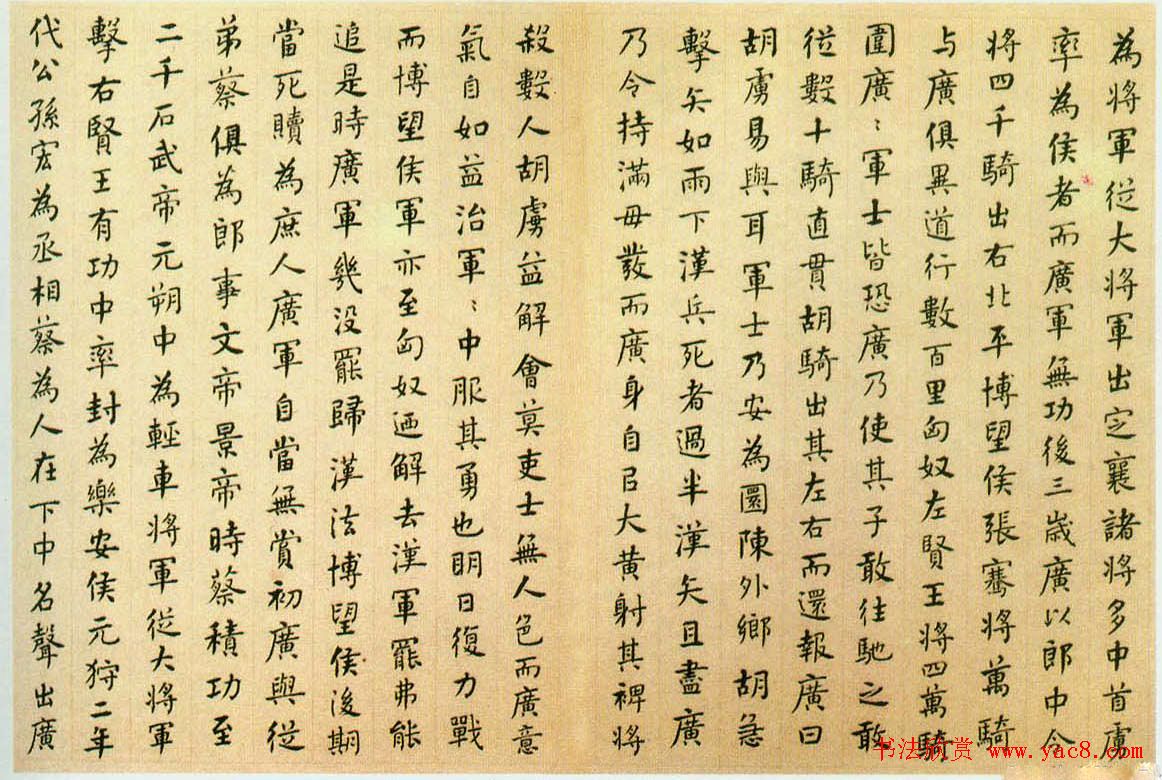 為將軍從大將軍出定襄諸將多中首虜
率為侯者而廣軍無功後三歲廣以郎中令
將四千騎出右北平博望侯張騫將萬騎
与廣俱異道行數百里匈奴左賢王將四萬騎
圍廣〻軍士皆恐廣乃使其子敢往馳之敢
從數十騎直貫胡騎出其左右而還報廣曰
胡虜易與耳軍士乃安為圜陳外鄉胡急
擊矢如雨下漢兵死者過半漢矢且盡廣
乃令持滿毋發而廣身自以大黃射其裨將
殺數人胡虜益解會莫吏士無人色而廣意
氣自如益治軍〻中服其勇也明日復力戰
而博望侯軍亦至匈奴迺解去漢軍罷弗能
追是時廣軍幾没罷歸漢法博望侯後期
當死贖為庶人廣軍自當無賞初廣與從
弟蔡俱為郎事文帝景帝時蔡積功至
二千石武帝元朔中為輕車將軍從大將軍
擊右賢王有功中率封為樂安侯元狩二年
代公孫宏為丞相蔡為人在下中名聲出廣
书法欣赏 www.yac8.com